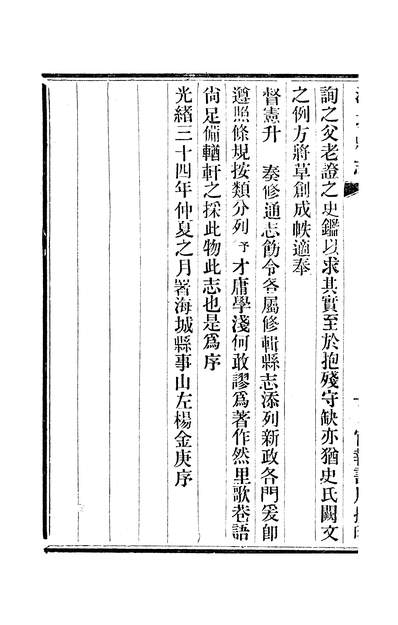 詢之父老證之史鑑以求其實至於抱殘守缺亦猶史氏闕文
之例方將草創成帙適奉
督憲升　奏修通志飭令各屬修輯縣志添列新政各門爰卽
遵照條規按類分列予才庸學淺何敢謬爲著作然里歌巷語
尙足備輶軒之採此物此志也是爲序
光緖三十四年仲夏之月署海城縣事山左楊金庚序